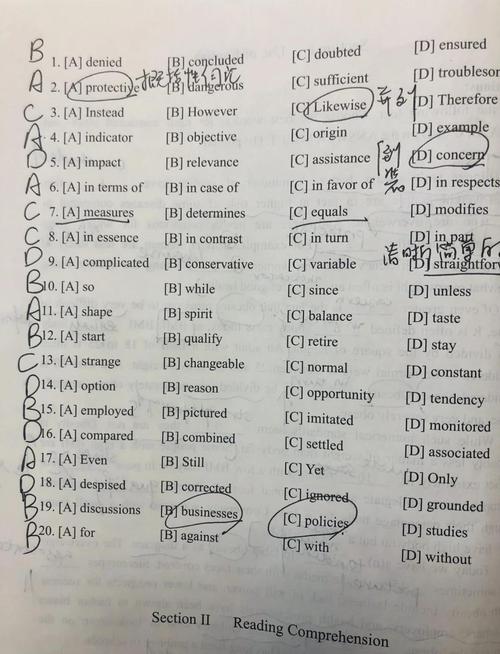 B 1. [A] denied [B] concluded [C] doubted [D] ensured
A 2. [A] protective [B] dangerous [C] sufficient [D] troublesom
C 3. [A] Instead [B] However [C] Likewise [D] Therefore
A 4. [A] indicator [B] objective [C] origin [D] example
D 5. [A] impact [B] relevance [C] assistance [D] concern
A 6. [A] in terms of [B] in case of [C] in favor of [D] in respects
C 7. [A] measures [B] determines [C] equals [D] modifies
C 8. [A] in essence [B] in contrast [C] in turn [D] in part
D 9. [A] complicated [B] conservative [C] variable [D] straightforw
B 10. [A] so [B] while [C] since [D] unless
A 11. [A] shape [B] spirit [C] balance [D] taste
B 12. [A] start [B] qualify [C] retire [D] stay
C 13. [A] strange [B] changeable [C] normal [D] constant
D 14. [A] option [B] reason [C] opportunity [D] tendency
B 15. [A] employed [B] pictured [C] imitated [D] monitored
D 16. [A] compared [B] combined [C] settled [D] associated
A 17. [A] Even [B] Still [C] Yet [D] Only
D 18. [A] despised [B] corrected [C] ignored [D] grounded
B 19. [A] discussions [B] businesses [C] policies [D] studies
B 20. [A] for [B] against [C] with [D] without
Section II Reading Comprehension